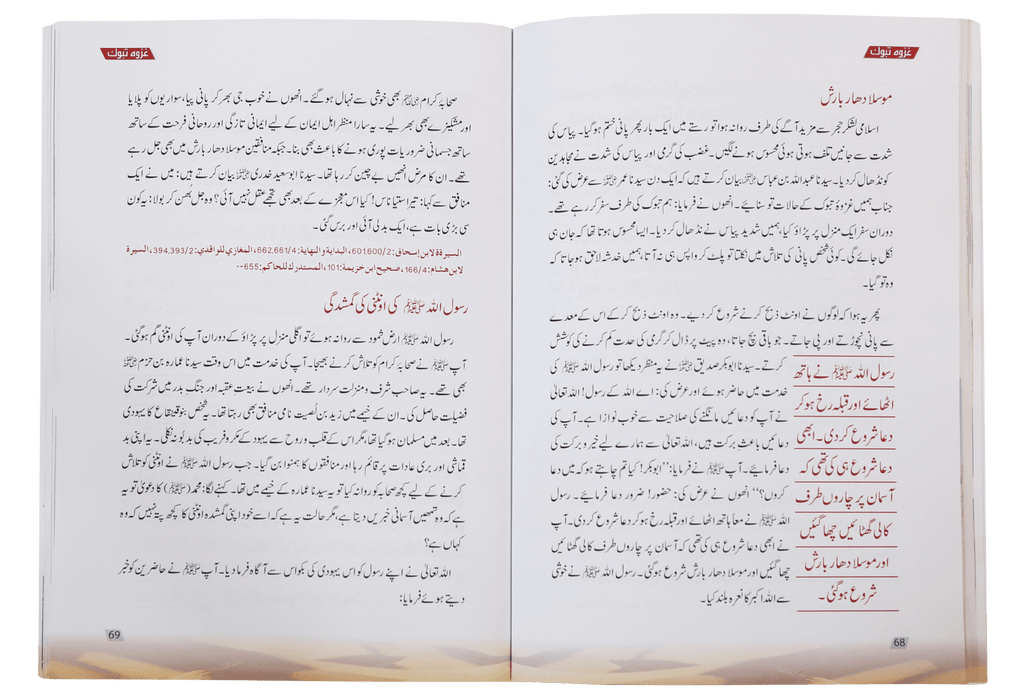 غزوہ تبوک
موسلا دھار بارش
اسلامی لشکر حجر سے مزید آگے کی طرف روانہ ہوا تو رستے میں ایک بار پھر پانی ختم ہوگیا۔ پیاس کی
شدت سے جانیں تلف ہوتی ہوئی محسوس ہونے لگیں۔ غضب کی گرمی اور پیاس کی شدت نے مجاہدین
کو نڈھال کر دیا۔ سیدنا عبداللہ بن عباس رضی اللہ عنہما بیان کرتے ہیں کہ ایک دن سیدنا عمر رضی اللہ عنہ سے عرض کی گئی:
جناب ہمیں غزوۂ تبوک کے حالات تو سنائیے۔ انھوں نے فرمایا: ہم تبوک کی طرف سفر کر رہے تھے۔
دوران سفر ایک منزل پر پڑاؤ کیا، ہمیں شدید پیاس نے نڈھال کر دیا۔ ایسا محسوس ہوتا تھا کہ جان ہی
نکل جائے گی۔ کوئی شخص پانی کی تلاش میں نکلتا تو پلٹ کر واپس ہی نہ آتا، ہمیں خدشہ لاحق ہو جاتا کہ
وہ تو گیا۔
پھر یہ ہوا کہ لوگوں نے اونٹ ذبح کرنے شروع کر دیے۔ وہ اونٹ ذبح کر کے اس کے معدے
سے پانی نچوڑتے اور پی جاتے۔ جو باقی بچ جاتا، وہ پیٹ پر ڈال کر گرمی کی حدت کم کرنے کی کوشش
کرتے۔ سیدنا ابوبکر صدیق رضی اللہ عنہ نے یہ منظر دیکھا تو رسول اللہ ﷺ کی
خدمت میں حاضر ہوئے اور عرض کی: اے اللہ کے رسول! اللہ تعالیٰ
نے آپ کو دعائیں مانگنے کی صلاحیت سے خوب نوازا ہے۔ آپ کی
دعائیں باعث برکت ہیں، اللہ تعالیٰ سے ہمارے لیے خیر و برکت کی
دعا فرمائیے۔ آپ ﷺ نے فرمایا: ’’ابوبکر! کیا تم چاہتے ہو کہ میں دعا
کروں؟‘‘ انھوں نے عرض کی: حضور! ضرور دعا فرمائیے۔ رسول
اللہ ﷺ نے معاً ہاتھ اٹھائے اور قبلہ رخ ہو کر دعا شروع کر دی۔ آپ
نے ابھی دعا شروع ہی کی تھی کہ آسمان پر چاروں طرف کالی گھٹائیں
چھا گئیں اور موسلا دھار بارش شروع ہوگئی۔ رسول اللہ ﷺ نے خوشی
سے اللہ اکبر کا نعرہ بلند کیا۔
رسول اللہ ﷺ نے ہاتھ
اٹھائے اور قبلہ رخ ہو کر
دعا شروع کر دی۔ ابھی
دعا شروع ہی کی تھی کہ
آسمان پر چاروں طرف
کالی گھٹائیں چھا گئیں
اور موسلا دھار بارش
شروع ہوگئی۔
68
غزوہ تبوک
صحابۂ کرام رضی اللہ عنہم بھی خوشی سے نہال ہوگئے۔ انھوں نے خوب جی بھر کر پانی پیا، سواریوں کو پلایا
اور مشکیزے بھی بھر لیے۔ یہ سارا منظر اہل ایمان کے لیے ایمانی تازگی اور روحانی فرحت کے ساتھ
ساتھ جسمانی ضروریات پوری ہونے کا باعث بھی بنا۔ جبکہ منافقین موسلا دھار بارش میں بھی جل رہے
تھے۔ ان کا مرض انھیں بے چین کر رہا تھا۔ سیدنا ابوسعید خدری رضی اللہ عنہ بیان کرتے ہیں: میں نے ایک
منافق سے کہا: تیرا ستیاناس! کیا اس معجزے کے بعد بھی تجھے عقل نہیں آئی؟ وہ جل بھن کر بولا: یہ کون
سی بڑی بات ہے، ایک بدلی آئی اور برس گئی۔
السیرۃ لابن إسحاق: 601,600/2، البدایة والنهایة: 662,661/4، المغازي للواقدي: 394,393/2، السیرة
لابن هشام: 166/4، صحیح ابن خزیمة: 101، المستدرك للحاكم: 655-۰
رسول اللہ ﷺ کی اونٹنی کی گمشدگی
رسول اللہ ﷺ ارض ثمود سے روانہ ہوئے تو اگلی منزل پر پڑاؤ کے دوران آپ کی اونٹنی گم ہوگئی۔
آپ ﷺ نے صحابہ کرام کو تلاش کرنے بھیجا۔ آپ کی خدمت میں اس وقت سیدنا عمارہ بن حزم رضی اللہ عنہ
بھی تھے۔ یہ صاحب شرف و منزلت سردار تھے۔ انھوں نے بیعت عقبہ اور جنگ بدر میں شرکت کی
فضیلت حاصل کی۔ ان کے خیمے میں زید بن لُصیت نامی منافق بھی رہتا تھا۔ یہ شخص بنوقینقاع کا یہودی
تھا۔ بعد میں مسلمان ہوگیا تھا، مگر اس کے قلب و روح سے یہود کے مکر و فریب کی بدبو نہ نکلی۔ یہ اپنی بد
قماشی اور بری عادات پر قائم رہا اور منافقوں کا ہمنوا بن گیا۔ جب رسول اللہ ﷺ نے اونٹنی کو تلاش
کرنے کے لیے کچھ صحابہ کو روانہ کیا تو یہ سیدنا عمارہ کے خیمے میں تھا۔ کہنے لگا: محمد (ﷺ) کا دعویٰ تو یہ
ہے کہ وہ تمھیں آسمانی خبریں دیتا ہے، مگر حالت یہ ہے کہ اسے خود اپنی گمشدہ اونٹنی کا کچھ پتہ نہیں کہ وہ
کہاں ہے؟
اللہ تعالیٰ نے اپنے رسول کو اس یہودی کی بکواس سے آگاہ فرما دیا۔ آپ ﷺ نے حاضرین کو خبر
دیتے ہوئے فرمایا:
69